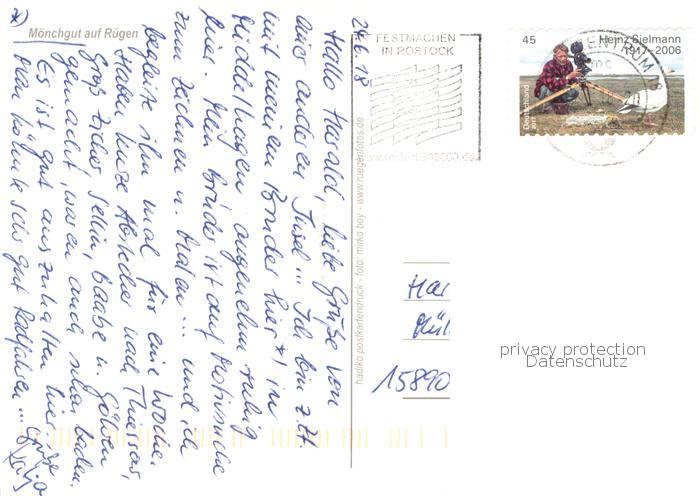 *)
Mönchgut auf Rügen
24.6.18
Hallo Harald, liebe Grüße von
einer anderen Insel... Ich bin z.Zt.
mit meinem Bruder hier *) in
Middelhagen, angenehm ruhig
hier. Mein Bruder ist auf Motivsuche
zum Zeichnen u. Malen... und ich
begleite ihn mal für eine Woche.
Haben kurze Abstecher nach Thiessow,
Groß Zicker, Sellin, Baabe u. Göhren
gemacht, waren auch schon baden.
Es ist gut auszuhalten hier
Man könnte sehr gut Radfahren... Grüße
Katja
hadiko postkartendruck - foto: mirko boy - www.ruegenfotos.de
FESTMACHEN
IN ROSTOCK
45
Heinz Sielmann
1917-2006
Deutschland
ZENTRUM
mc
Har
Mül
15890
privacy protection
Datenschutz